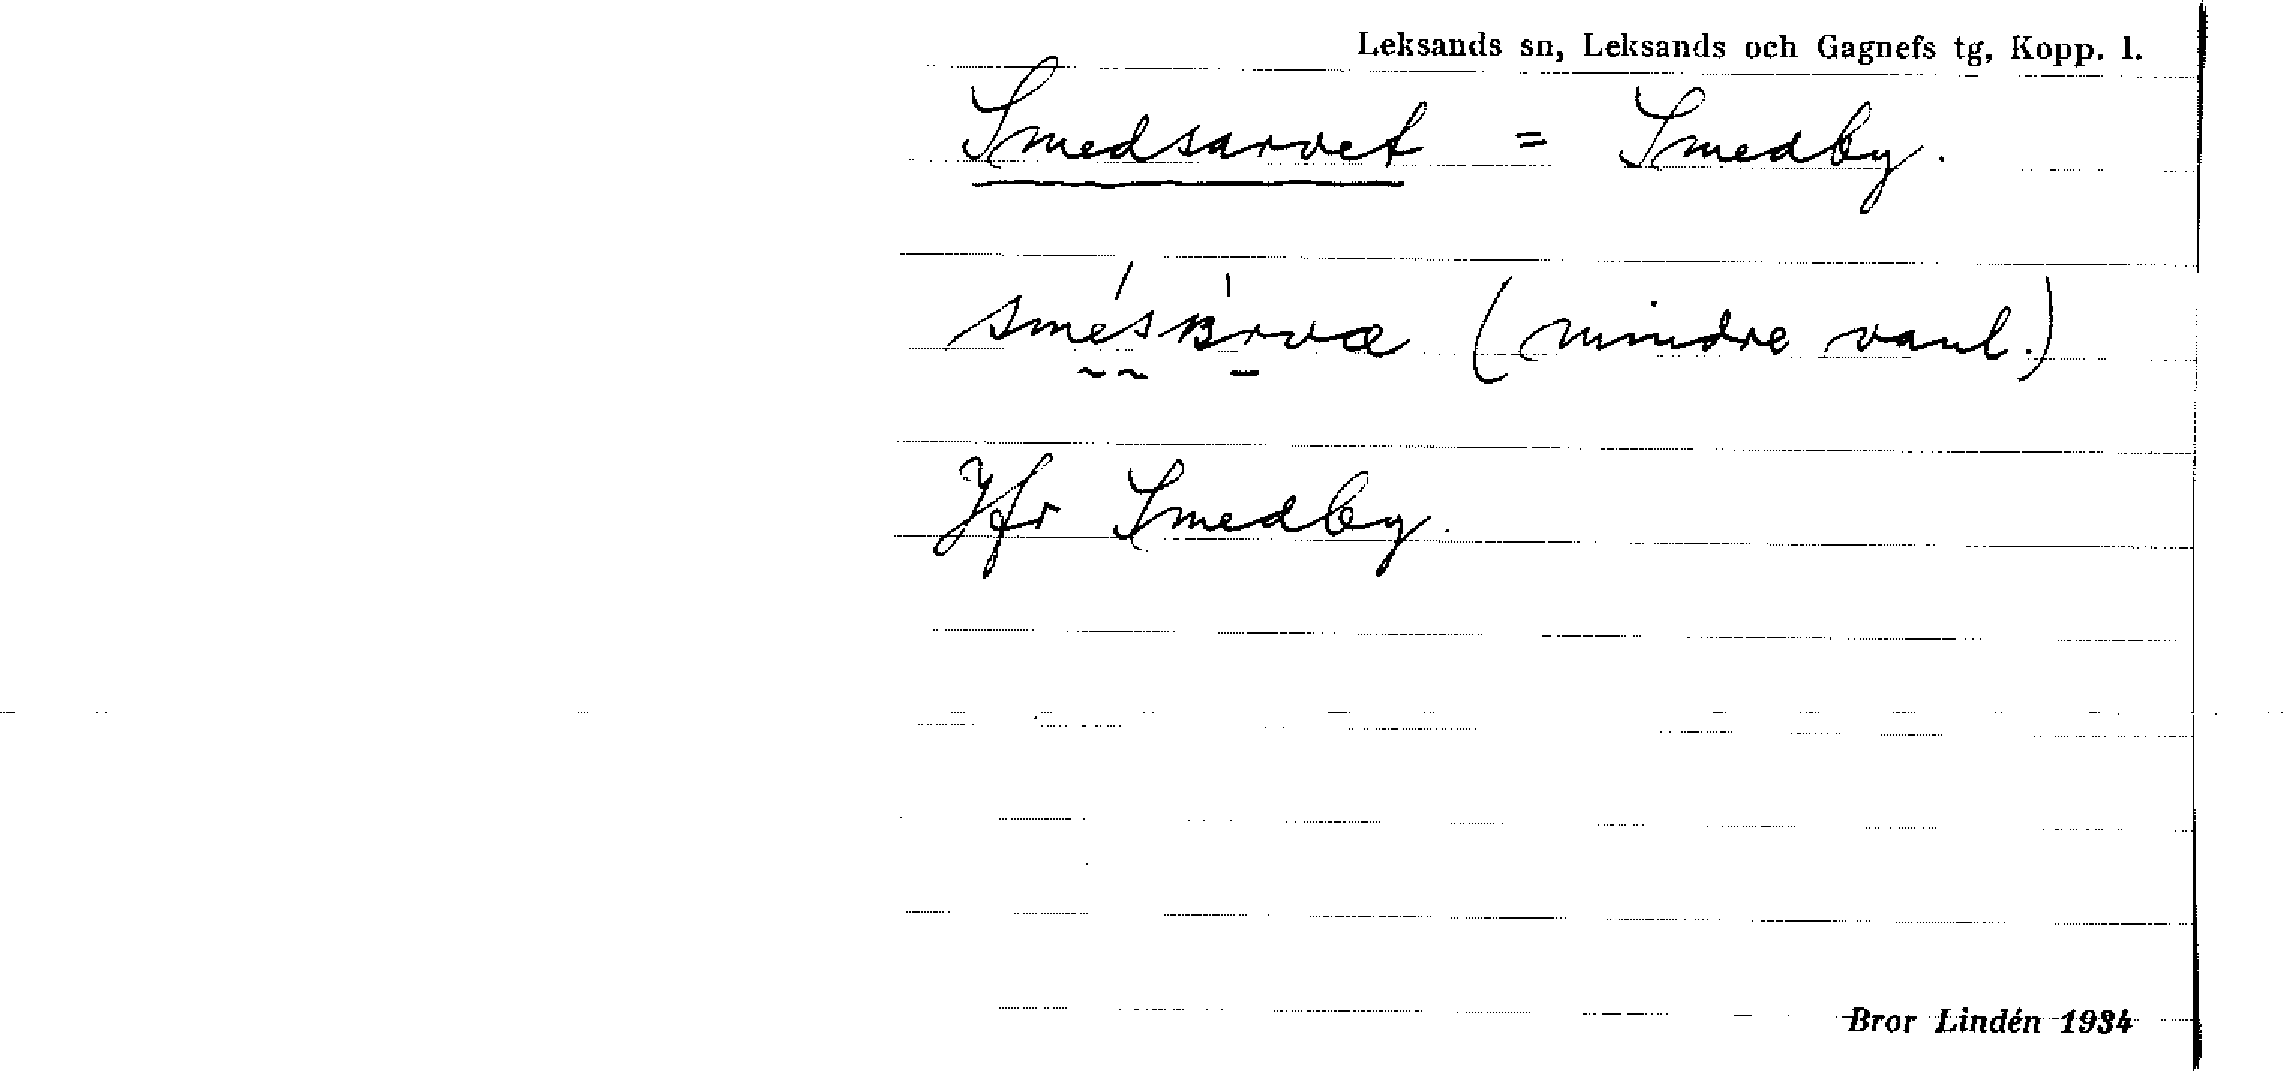 Leksands sn, Leksands och Gagnefs tg, Kopp. l.
Smedsarvet = Smedby.
(mindre vanl.)
Jfr Smedby.
Bror Lindén 1934